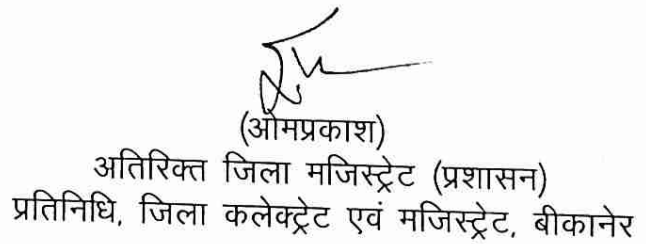 (ओमप्रकाश)
अतिरिक्त जिला मजिस्ट्रेट (प्रशासन)
प्रतिनिधि, जिला कलेक्ट्रेट एवं मजिस्ट्रेट, बीकानेर